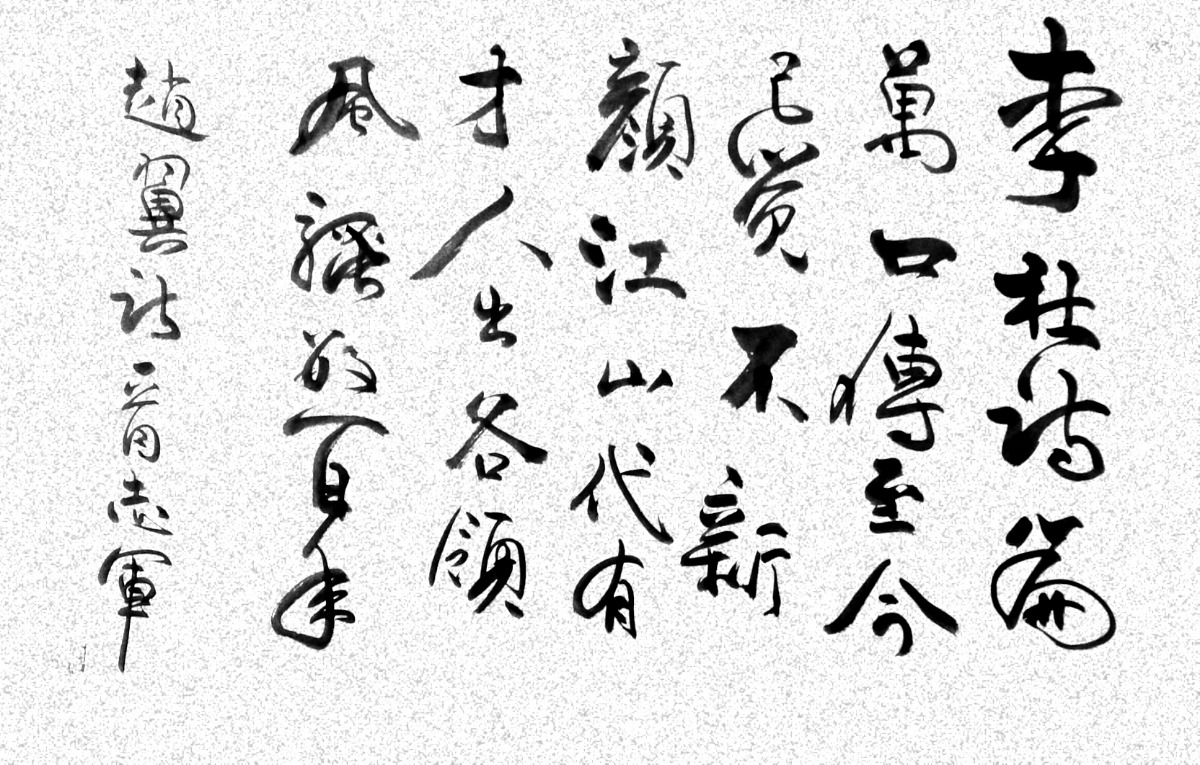 李杜詩篇
萬口傳至今
已覺不新
顏江山代有
才人出各領
風騷數百年
趙翼詩志軍